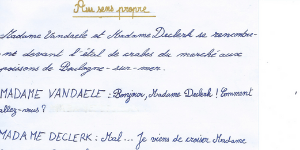 Au sens propre
Madame Vandaele et Madame Declerk se rencontre-
nt devant l'étal de crabes du marché aux
poissons de Boulogne-sur-mer.
MADAME VANDAELE : Bonjour, Madame Declerk ! Comment
allez-vous ?
MADAME DECLERK : Mal... Je viens de croiser Madame